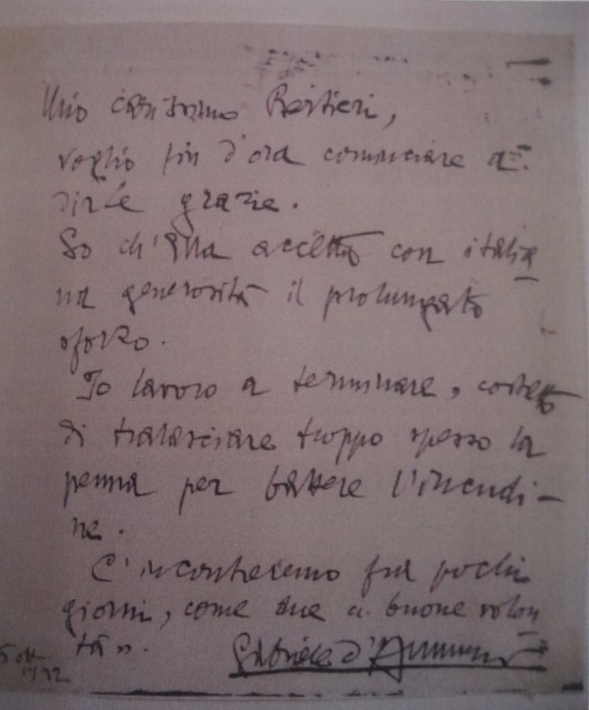 Mio carissimo
voglio fin d'ora cominciare a
dirLe grazie.
So ch'Ella accetta con italia
na generosità il prolungato
sforzo.
Io lavoro a terminare,
di tralasciare troppo spesso la
penna per battere l'incudi-
ne.
C'incontreremo fra pochi
giorni, come due "di buone volon
tà".
Gabriele d'Annunzio